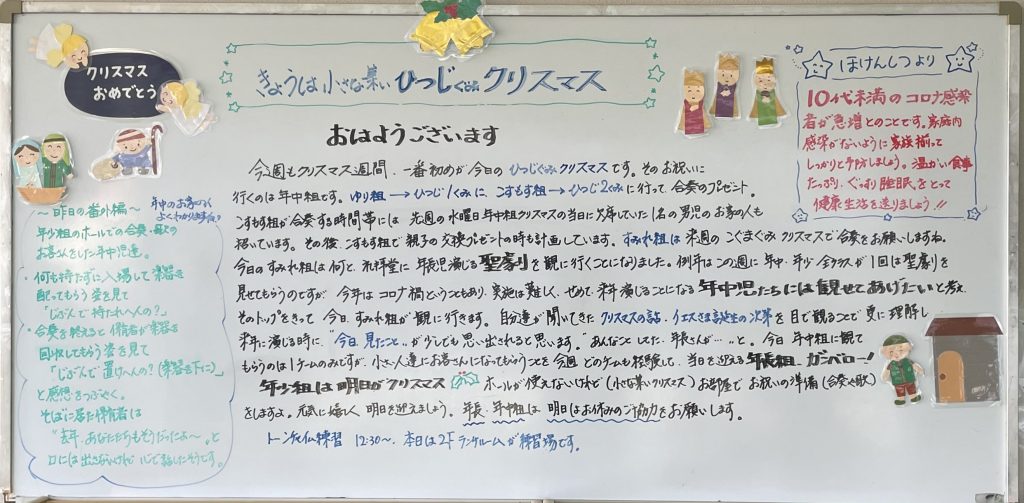 クリスマス
おめでとう
きょうは 小さな集い ひつじぐみ クリスマス
おはようございます
今週もクリスマス週間、一番初めが今日の ひつじぐみ クリスマスです。そのお祝いに
行くのは年中組です。ゆり組→ひつじ1くみに、こすもす組→ひつじ2くみに行って合奏のプレゼント。
こすもす組が合奏する時間帯には 先週の水曜日年中組クリスマスの当日に欠席していた1名の男児のお家の人も
招いています。その後、こすもす組で 親子の交換プレゼントの時も計画しています。すみれ組は 来週の こぐまぐみ クリスマスで合奏をお願いしますね。
今日のすみれ組は何と、礼拝堂に 年長児演じる 聖劇りを観に行くことになりました。例年はこの週に 年中・年少 全クラスが1回は聖劇りを
見せてもらうのですが 今年はコロナ禍ということもあり、実施は難しく、せめて 来年演じることになる 年中児たちには観せてあげたいと考え、
そのトップをきって 今日、すみれ組が観に行きます。自分達が聞いてきた クリスマスの話、イエスさま誕生の次第を目で観ることで更に理解し
来年に演じる時に、"今日、見たこと"が少しでも思い出されると思います。"あんなことしてた、年長さんが…"と。今日 年中組に観て
もらうのは1チームのみですが、小さい人達にお客さんになってもらうことを今週 どのチームも経験して、当日を迎える 年長組、ガンバロー！
年少組は明日がクリスマス ホールが使えないけれど(小さな集いクリスマス)お部屋で お祝いの準備(合奏や歌)
をしますよ。元気に嬉しく 明日を迎えましょう。年長・年中組は 明日はお休みのご協力をお願いします。
トーンチャイム練習 12:30〜、本日は2Fランチルームが練習場です。
〜昨日の番外編〜
年中のお家の人
よくわかりますね
年少組のホールでの合奏・歌の
お客さんをした年中児達。
・何も持たずに入場して楽器を
配ってもらう姿を見て
「じぶんで持たれへんの？」
・合奏を終えると保育者が楽器を
回収してもらう姿を見て
「じぶんで置けへんの？(楽器を下に)」
と感想をつぶやく。
そばに居た保育者は
"去年、あなたたちもそうだったよ〜。"と
口には出さないけれど 心で話したそうです。
ほけんしつより
10代未満のコロナ感染
者が急増とのことです。家庭内
感染がないように家族揃って
しっかりと予防しましょう。温かい食事
たっぷり、ぐっすり睡眠をとって
健康生活を送りましょう!!